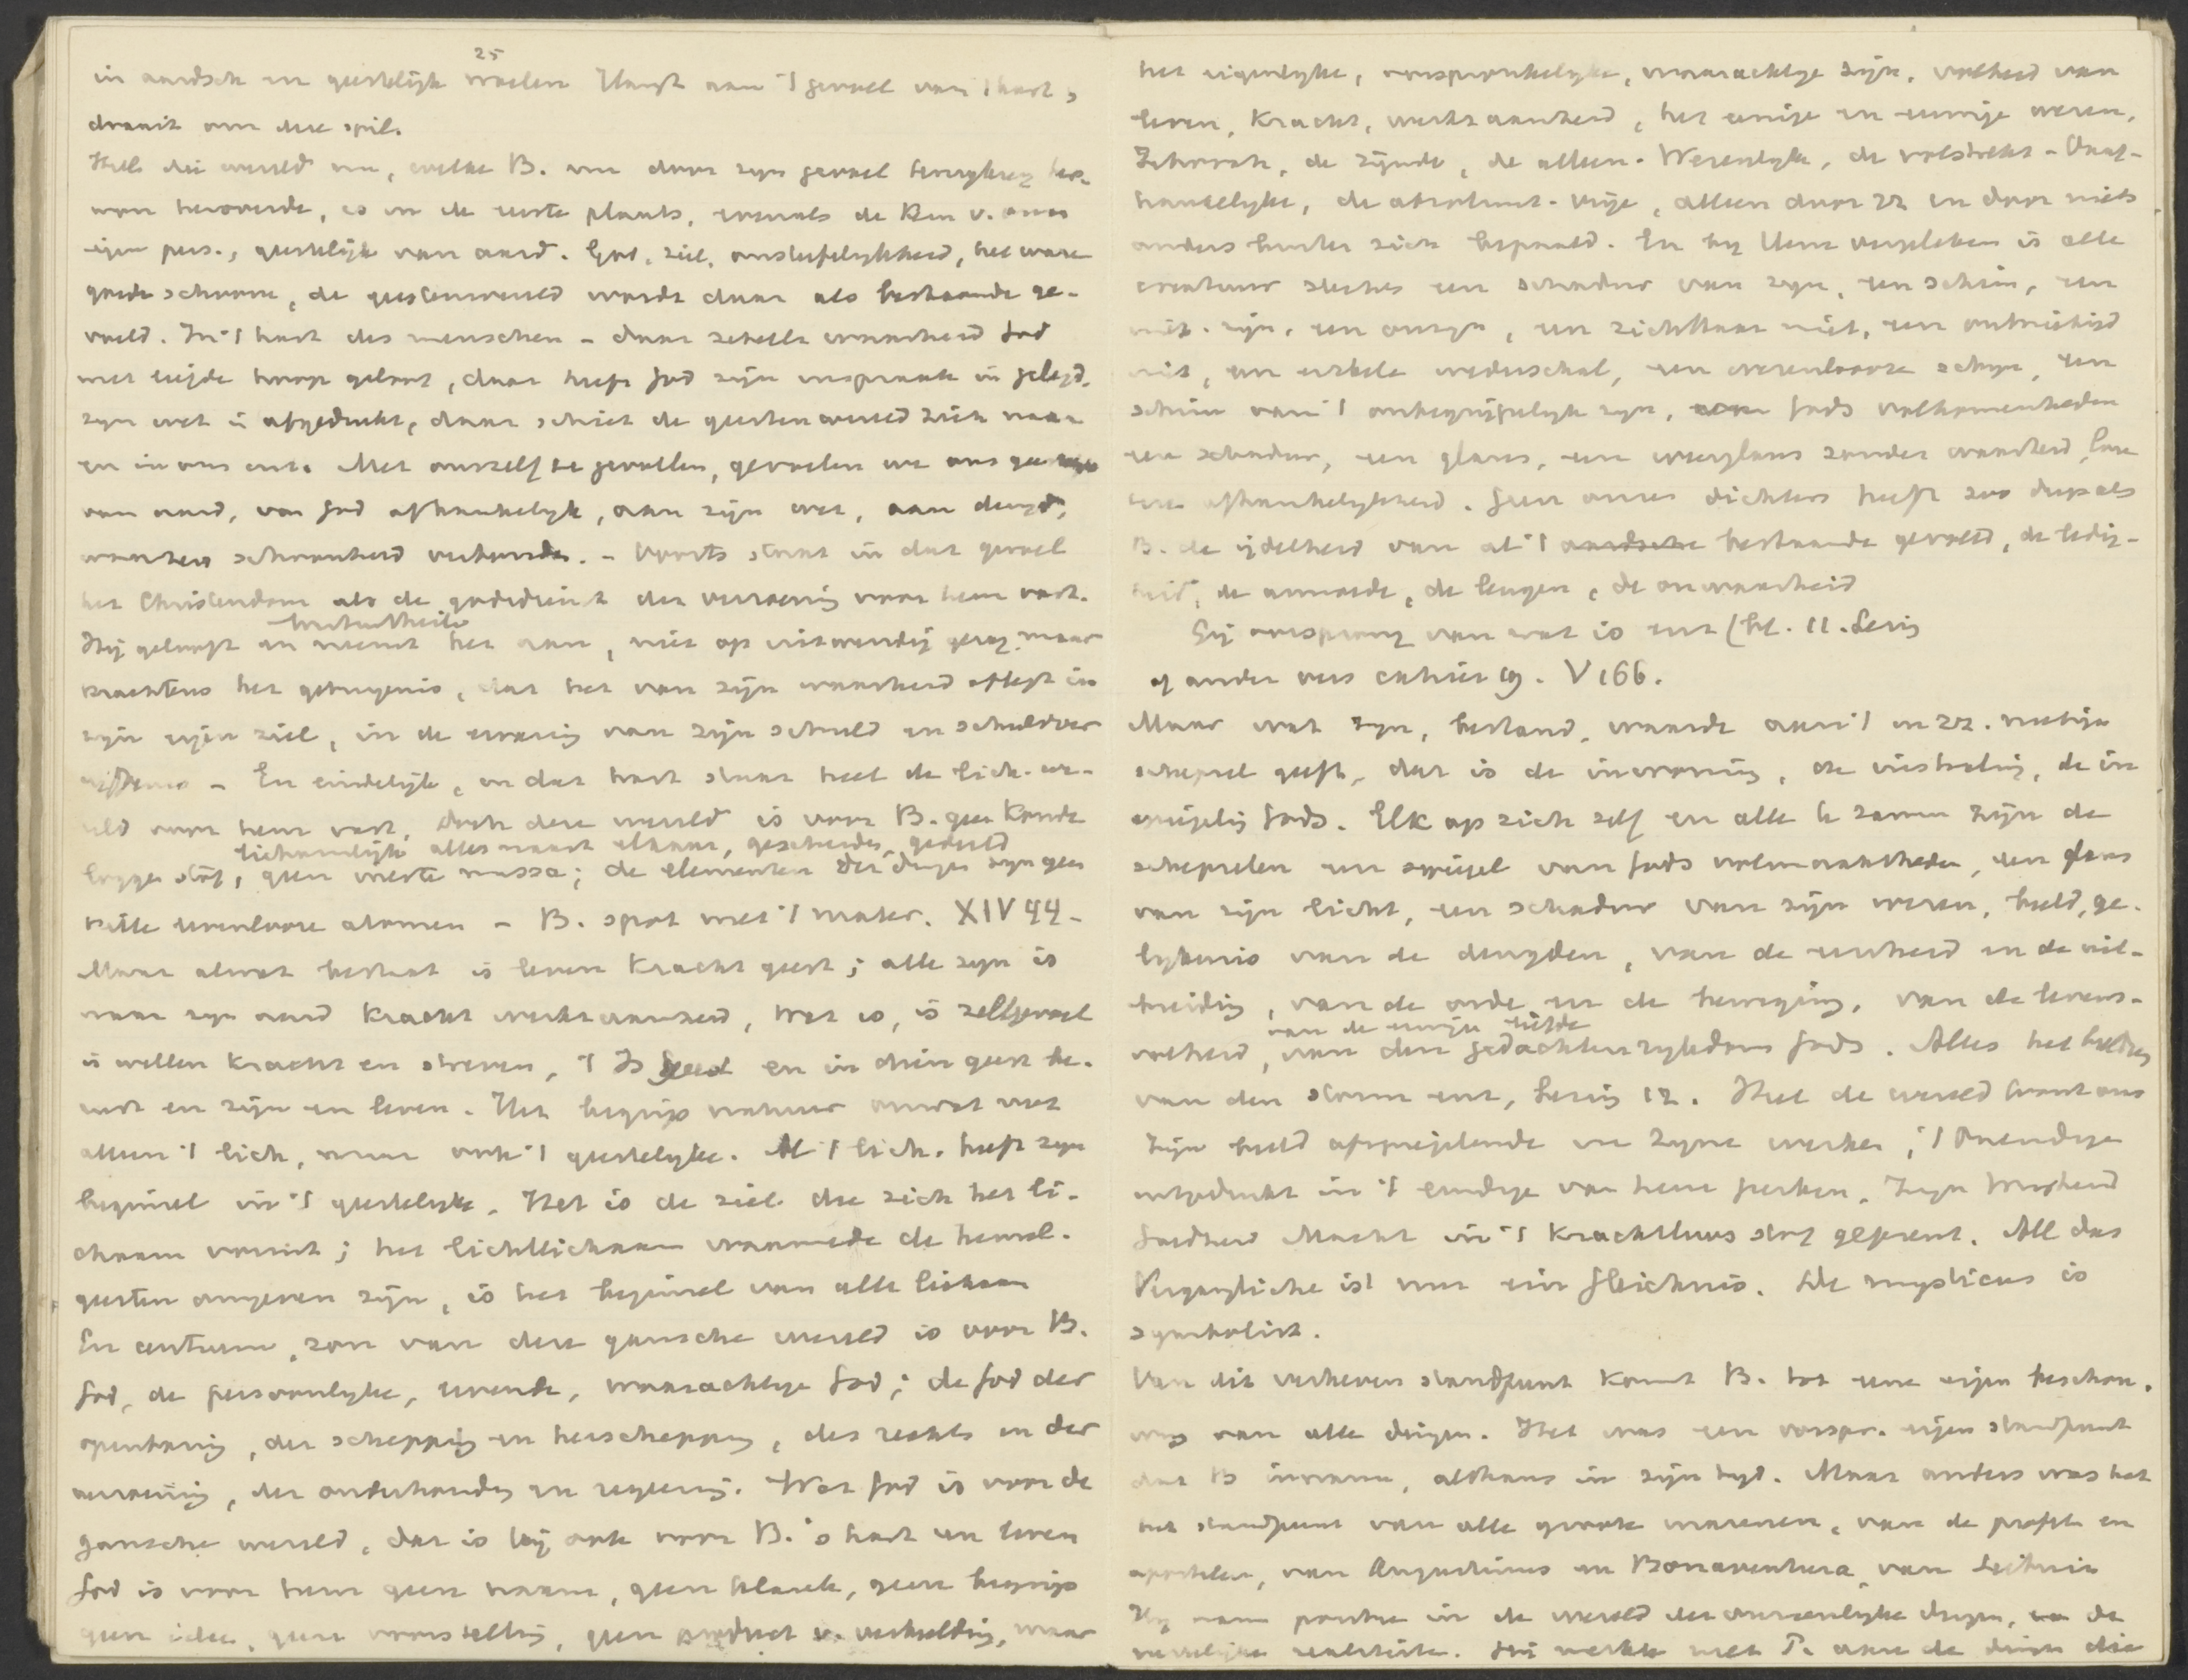 25
in aardsch en geestelijk voelen hangt aan 't gevoel van 't hart,
draait om deze spil.
Heel die wereld nu, welke B. nu door zijn gevoel
, is in de eerste plaats, evenals de kern v. onze
eigen pers., geestelijk van aard. God, ziel, onsterfelijkheid, het ware
goede schoone, de geestenwereld wordt daar als bestaande ge-
voeld. In 't hart des menschen - daar zetelt waarheid God
met liefde , daar heeft God zijn uitspraak in gelegd,
zijn wet in afgedrukt, daar de geestenwereld zich naar
en in ons uit. Met onszelf te gevoelen, gevoelen we ons
van aard, van God afhankelijk, aan zijn wet, aan deugd,
waarheid schoonheid verbonden. - Voorts staat in dat gevoel
het Christendom als de godsdienst der verzoening voor hem vast.
Hij gelooft en neemt het aan, niet op uitwendig gezag maar
krachtens het getuigenis, dat het van zijn waarheid aflegt in
zijn eigen ziel, in de ervaring van zijn schuld en schuldver
giffenis - En eindelijk, in dat hart staat heel de lich. we-
reld voor hem vast, doch deze wereld is voor B. geen koude
lichamelijk alles naast elkaar, gescheiden, gedeeld
stof, geen massa; de elementen der dingen zijn geen
levenlooze atomen - B. spot met 't mater. XIV 44 -
Maar alwat bestaat is leven kracht geest; alle zijn is
naar zijn aard kracht werkzaamheid, Wat is, is zelfgevoel
is willen kracht en streven, 't Is geest en in dien geest be-
wust en zijn en leven. Het begrip natuur omvat niet
alleen 't lich. maar ook 't geestelijke. Al 't lich. heeft zijn
beginsel in 't geestelijke. Het is de ziel die zich het li-
chaam vormt; het lichtlichaam waarmede de hemel-
geesten omgeven zijn, is het beginsel van alle lichaam
En centrum, zon van deze gansche wereld is voor B.
God, de persoonlijke, levende, waarachtige God; de God der
openbaring, der schepping en herscheppng, des rechts en der
verzoening, der onderhouding en regeering. Wat God is voor de
gansche wereld, dat is hij ook voor B.'s hart en leven
God is voor hem geen naam, geen klank, geen begrip
geen idee, geen voorstelling, geen product v. verbeelding, maar
het eigenlijke, oorspronkelijke, waarachtige zijn, volheid van
leven, kracht, werkzaamheid, het eenige en eeuwige wezen,
Jehovah, de zijnde, de alleen-Wezenlijke, de volstrekt-Onaf-
hankelijke, de absoluut-vrije, alleen door zz en door niets
anders buiten zich bepaald. En bij Hem vergeleken is alle
creatuur slechts een schaduw van zijn, een schijn, een
niet-zijn, een onzijn, een zichtbaar niet, een
niet, een enkele wederschal, een wezenlooze schijn, een
schijn van 't onbegrijpelijk zijn, Gods volkomenheden
een schaduw, een glans, een weerglans zonder waarheid,
afhankelijkheid. Geen onzer dichters heeft zoo diep als
B. de ijdelheid van al 't aardsche bestaande gevoeld, de ledig-
heid, de armoede, de leugen, de onwaarheid
Gij oorsprong van wat is enz (bl. 11. Lezing
of ander vers cahier 19. V 166.
Maar wat zijn, bestand, waarde aan 't in zz. nietige
schepsel geeft, dat is de inwoning, de instraling, de in
spiegeling Gods. Elk op zich zelf en alle te zamen zijn de
schepselen een spiegel van Gods volmaaktheden, een glans
van zijn licht, een schaduw van zijn wezen, beeld, ge-
lijkenis van de deugden, van de eenheid en de uit-
breiding, van de orde en de beweging, van de levens-
van de eeuwige liefde
volheid, van den gedachtenrijkdom Gods. Alles het
van den stam enz, Lezing 12. Heel de wereld toont ons
Zijn beeld afspiegelende in Zijne werken; 't Oneindige
uitgedrukt in 't eindige van hare perken, Zijn Wijsheid
Goedheid Macht in 't krachtloos stof geprent. All das
Vergängliche ist nur ein Gleichnis. De mysticus is
symbolist.
Van dit verheven standpunt komt B. tot eene eigen beschou-
wing van alle dingen. Het was een oorspr. eigen standpunt
dat B innam, althans in zijn tijd. Maar anders was het
het standpunt van alle groote mannen, van de profeten en
apostelen, van Augustinus en Bonaventura, van Leibniz
Hij nam positie in de wereld der onzienlijke dingen, de
eeuwige realiteiten. Hij werkte niet